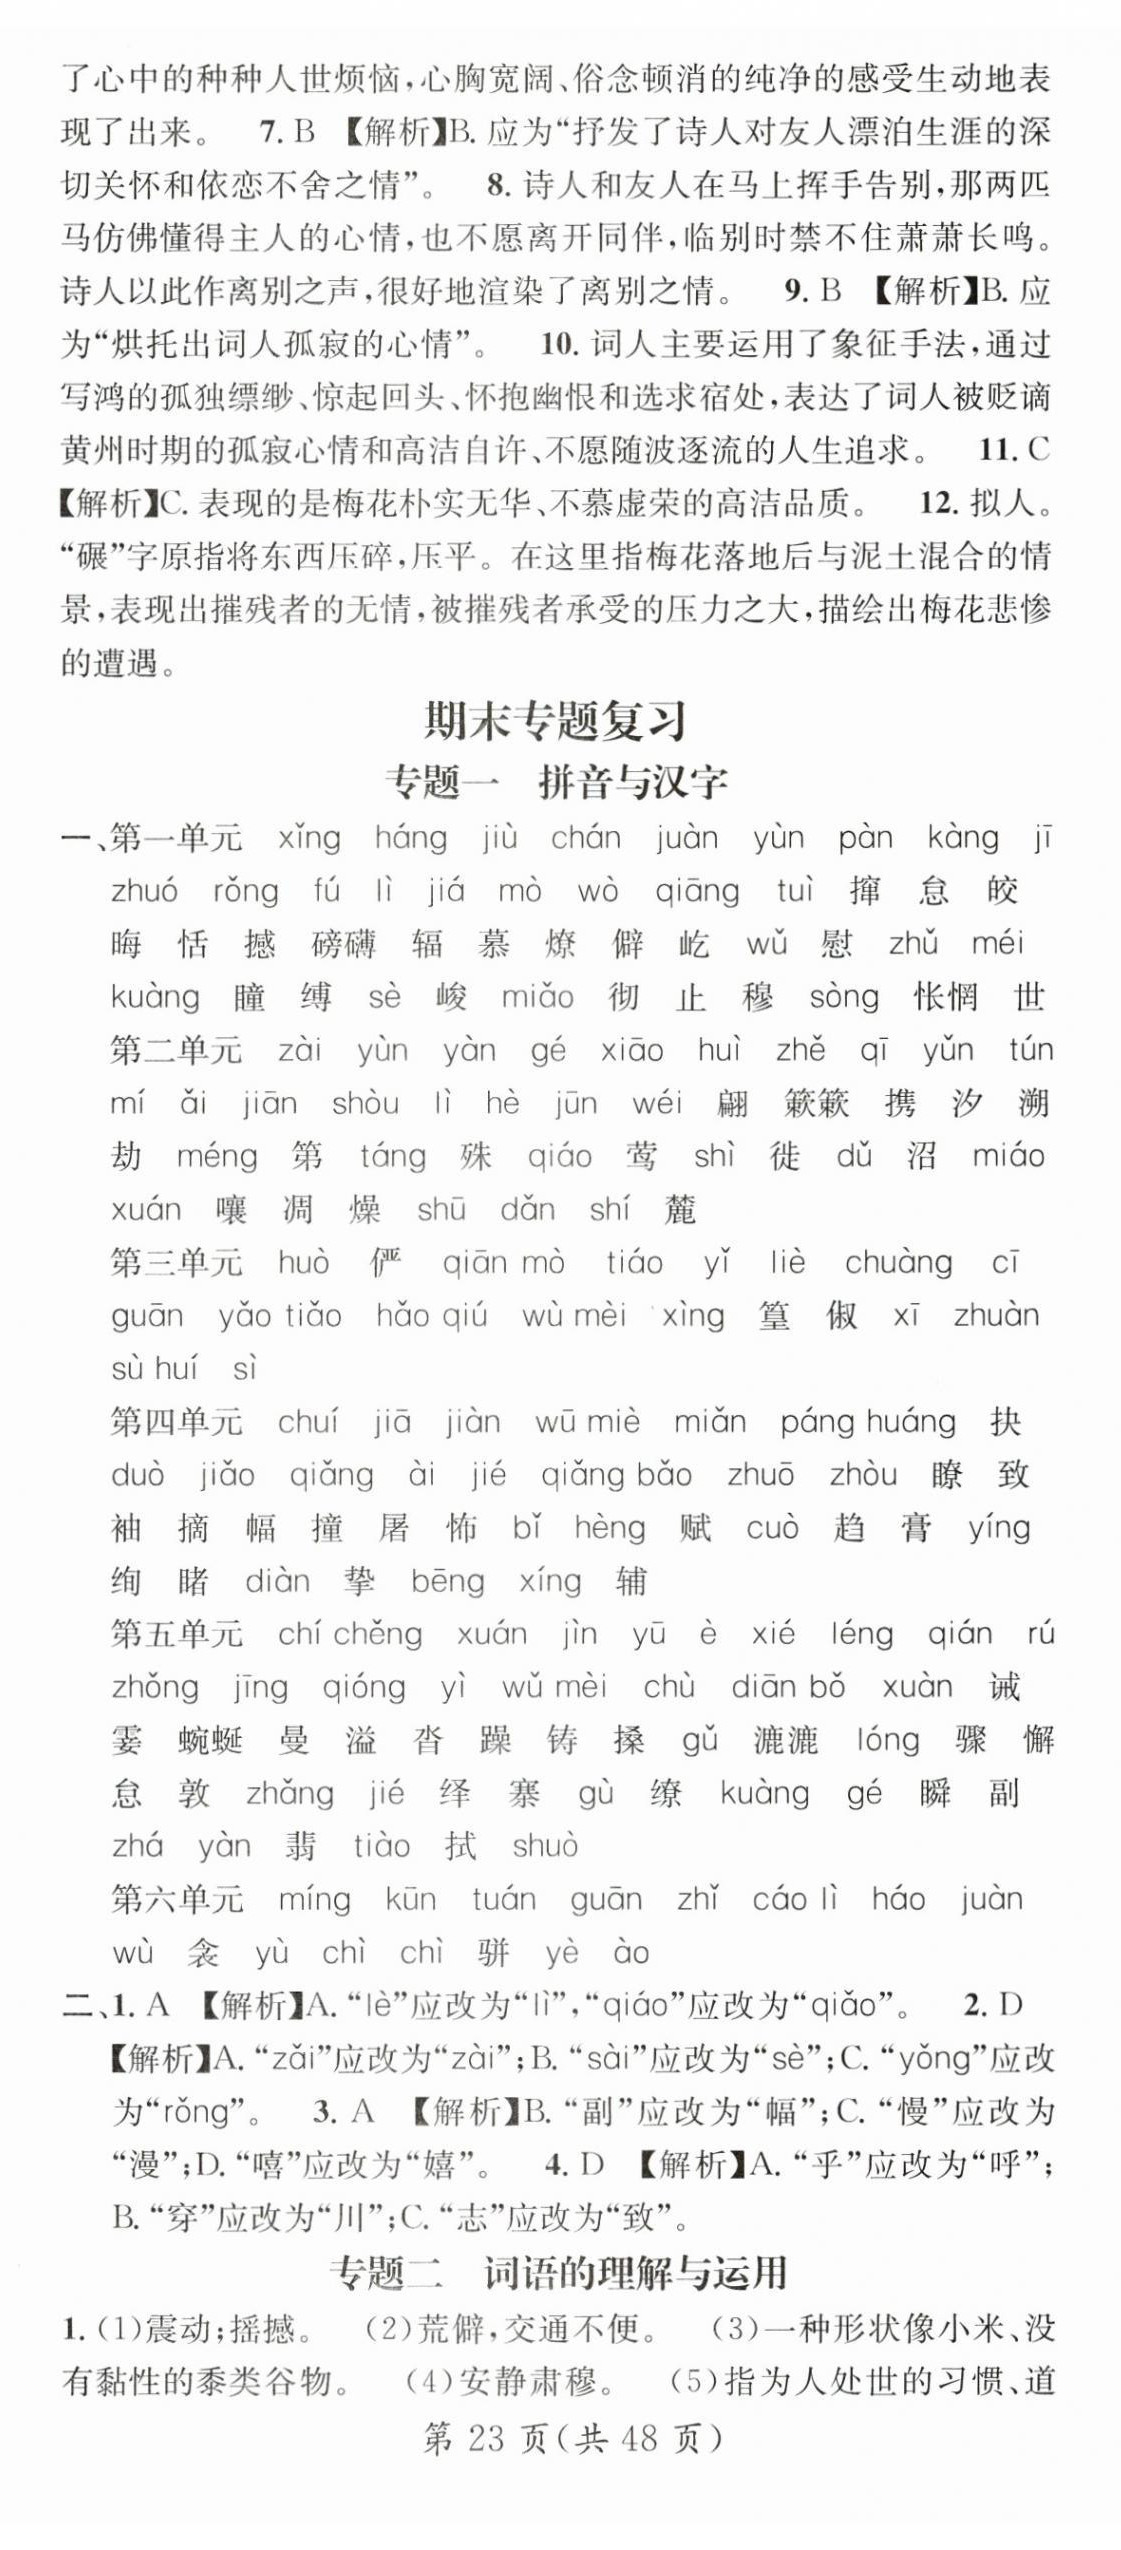 了心中的种种人世烦恼,心胸宽阔、俗念顿消的纯净的感受生动地表
现了出来。 7. B 【解析】B. 应为“抒发了诗人对友人漂泊生涯的深
切关怀和依恋不舍之情”。 8. 诗人和友人在马上挥手告别,那两匹
马仿佛懂得主人的心情,也不愿离开同伴,临别时禁不住萧萧长鸣。
诗人以此作离别之声,很好地渲染了离别之情。 9. B 【解析】B. 应
为“烘托出词人孤寂的心情”。 10. 词人主要运用了象征手法,通过
写鸿的孤独缥缈、惊起回头、怀抱幽恨和选求宿处,表达了词人被贬谪
黄州时期的孤寂心情和高洁自许、不愿随波逐流的人生追求。 11. C
【解析】C. 表现的是梅花朴实无华、不慕虚荣的高洁品质。 12. 拟人。
“碾”字原指将东西压碎,压平。在这里指梅花落地后与泥土混合的情
景,表现出摧残者的无情,被摧残者承受的压力之大,描绘出梅花悲惨
的遭遇。
期末专题复习
专题一 拼音与汉字
一、第一单元 xǐng háng jiù chán juàn yùn pàn kàng jī
zhuó rǒng fú lì jiá mò wò qiāng tuì 撺 怠 皎
晦 恬 撼 磅礴 辐 慕 燎 僻 屹 wǔ 慰 zhǔ méi
kuàng 瞳 缚 sè 峻 miǎo 彻 止 穆 sòng 怅惘 世
第二单元 zài yùn yàn gé xiāo huì zhě qī yǔn tún
mí ǎi jiān shòu lì hè jūn wéi 翩 簌簌 携 汐 溯
劫 méng 第 táng 殊 qiáo 莺 shì 徙 dǔ 沼 miáo
xuán 嚷 凋 燥 shū dǎn shí 麓
第三单元 huò 俨 qiān mò tiáo yǐ liè chuàng cī
guān yǎo tiǎo hǎo qiú wù mèi xìng 篁 俶 xī zhuàn
sù huí sì
第四单元 chuí jiā jiàn wū miè miǎn páng huáng 抉
duò jiǎo qiǎng ài jié qiǎng bǎo zhuō zhòu 瞭 致
袖 摘 幅 撞 屠 怖 bǐ hèng 赋 cuò 趋 膏 yíng
绚 睹 diàn 挚 bēng xíng 辅
第五单元 chí chěng xuán jìn yū è xié léng qián rú
zhǒng jīng qióng yì wǔ mèi chù diān bǒ xuàn 诫
霎 蜿蜒 曼 溢 沓 躁 铸 搡 gǔ 漉漉 lóng 骤 懈
怠 敦 zhǎng jié 绎 寨 gù 缭 kuàng gé 瞬 副
zhá yàn 翡 tiào 拭 shuò
第六单元 míng kūn tuán guān zhǐ cáo lì háo juàn
wù 衾 yù chì chì 骈 yè ào
二、1. A 【解析】A. “lè”应改为“lì”,“qiáo”应改为“qiǎo”。 2. D
【解析】A. “zǎi”应改为“zài”;B. “sài”应改为“sè”;C. “yǒng”应改
为“rǒng”。 3. A 【解析】B. “副”应改为“幅”;C. “慢”应改为
“漫”;D. “嘻”应改为“嬉”。 4. D 【解析】A. “乎”应改为“呼”;
B. “穿”应改为“川”;C. “志”应改为“致”。
专题二 词语的理解与运用
1. (1)震动;摇撼。 (2)荒僻,交通不便。 (3)一种形状像小米、没
有黏性的黍类谷物。 (4)安静肃穆。 (5)指为人处世的习惯、道
第 23 页(共 48 页)